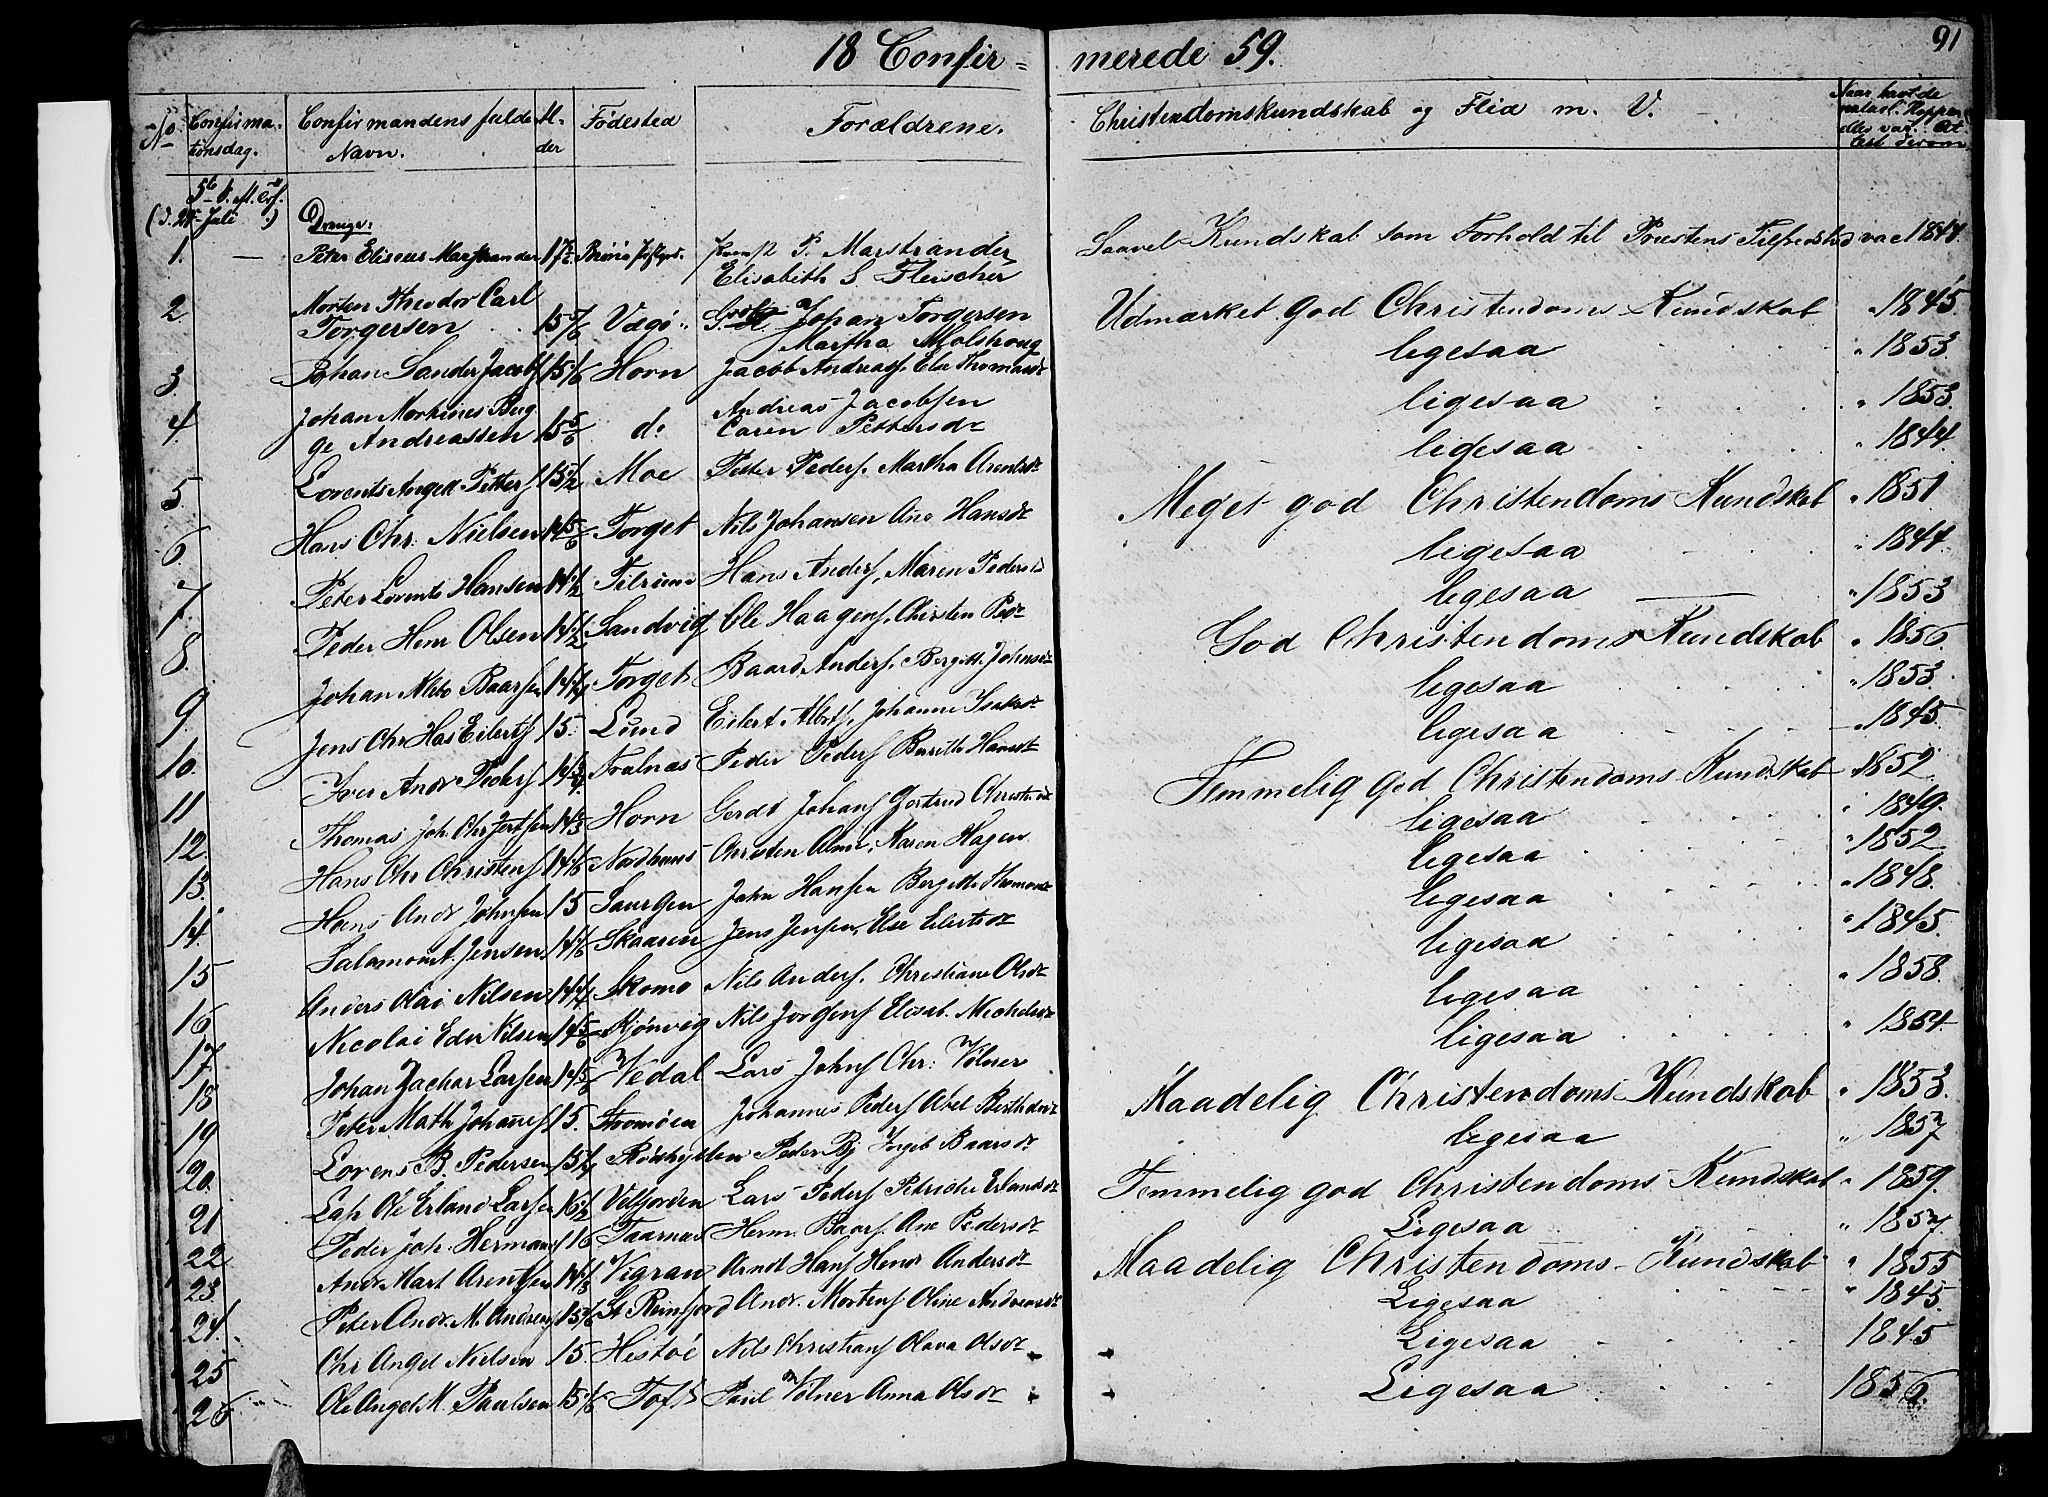 18 Confir=
merede 59.
91
No
Confirma-
tionsdag.
Confirmandens fulde
Navn.
Al-
der
Fødested
Forældrene.
Christendomskundskab og Flid m. V.
Naar havde
naturl. Kopper
eller vac. At
test derom
(d. 24 Juli)
Drenge:
1. Peter Eliseus Marstrander 17 P. Marstrander Saavel Kundskab som Forhold til Prestens Tilfredshed vac 1844.
Elisabeth S. Fleischer
2. Morten Theodor Carl
Torgersen 15 Vægø Johan Torgersen Udmærket god Christendoms Kundskab " 1845
Martha
3. Johan Sander Jacobs 15 Horn Jacob Andreas. Else Thomasdr ligesaa " 1853.
4 Johan Mortines Bug
ge Andreassen 15 5/6 do Andreas Jacobsen ligesaa " 1853.
Caren Pettersdr
5. Lorents Angell Petters 15 1/2 Moe Petter Peders. Martha Arentsdr ligesaa " 1844.
6 Hans Chr. Nielsen 14 5/6 Torget Nils Johansen Ane Hansdr Meget god Christendoms Kundskab " 1851
7 Peter Lorents Hansen 14 1/2 Tilrum Hans Anders, Maren Pedersd ligesaa " 1844.
8. Peder Henr Olsen 14 1/2 Sandvig Ole Haagens. Christen Pedr ligesaa " 1853
9. Johan Baarsen 14 1/4 Torget Baard Anders. Bergitte Johnsdr God Christendoms Kundskab " 1856.
10. Jens Chr Has Eilerts 15. Lund Eilert Alberts. Johanne Isaksdr ligesaa " 1853.
11 Iver Andr Peders 14 3/4 Tralnæs Peder Peders Berith Hansdr ligesaa " 1845.
12. Thomas Joh. Chr Gertsen 14 Horn Gerdt Johans Gertrud Christ Temmelig god Christendoms Kundskab 1852.
13. Hans Chr Christens 14 1/6 Nordhuus Christen Karen Hagen ligesaa " 1849.
14. Hans Andr Johnsen 15 Saurgen John Hansen Bergitte Thomasdr ligesaa " 1852
15 Salamon A. Jensen 14 Skaaren Jens Jensen, Else Eilertsdr ligesaa " 1848.
16 Anders Olai Nilsen 14 Skomo Nils Anders. Christiane Olsdr ligesaa " 1845.
17 Nicolai Eder Nilsen 14 5/6 Nils Jørgens Elisab. Michelsdr ligesaa " 1858.
18 Johan Zachar Larsen 14 5/6 Vedal Lars Johns Chr: Vølner ligesaa " 1854.
19 Peter Math Johannes 15. Strømøen Johannes Peders Abel Maadelig Christendoms Kundskab " 1853.
20. Lorens B. Pedersen 15 1/4 Rødshytten Peder Bj Ingeb Baarsdr ligesaa " 1857
21 Ole Erland Larsen 16 1/2 Velfjorden Lars Peders Petriche Erlandsdr Temmelig god Christendoms Kundskab " 1859.
22 Peder Joh. Hermans 16 Taarnæs Herm. Baars. Ane Pedersdr Ligesaa " 1857.
23. Andr Mart Arentsen 14 1/3 Vigran Arndt Hans Henr Andersdr Maadelig Christendoms Kundskab " 1855
24. Peter Andr. M. Andreas 15 Andr. Mortens Oline Andreasdr Ligesaa " 1845.
25 Chr Angel Nielsen 15. Hestøe Nils Christians Olava Olsdr Ligesaa 1845
26 Ole Angel M. Paulsen 15 1/6 Toft Paul Vølner Anna Olsdr Ligesaa 1856.